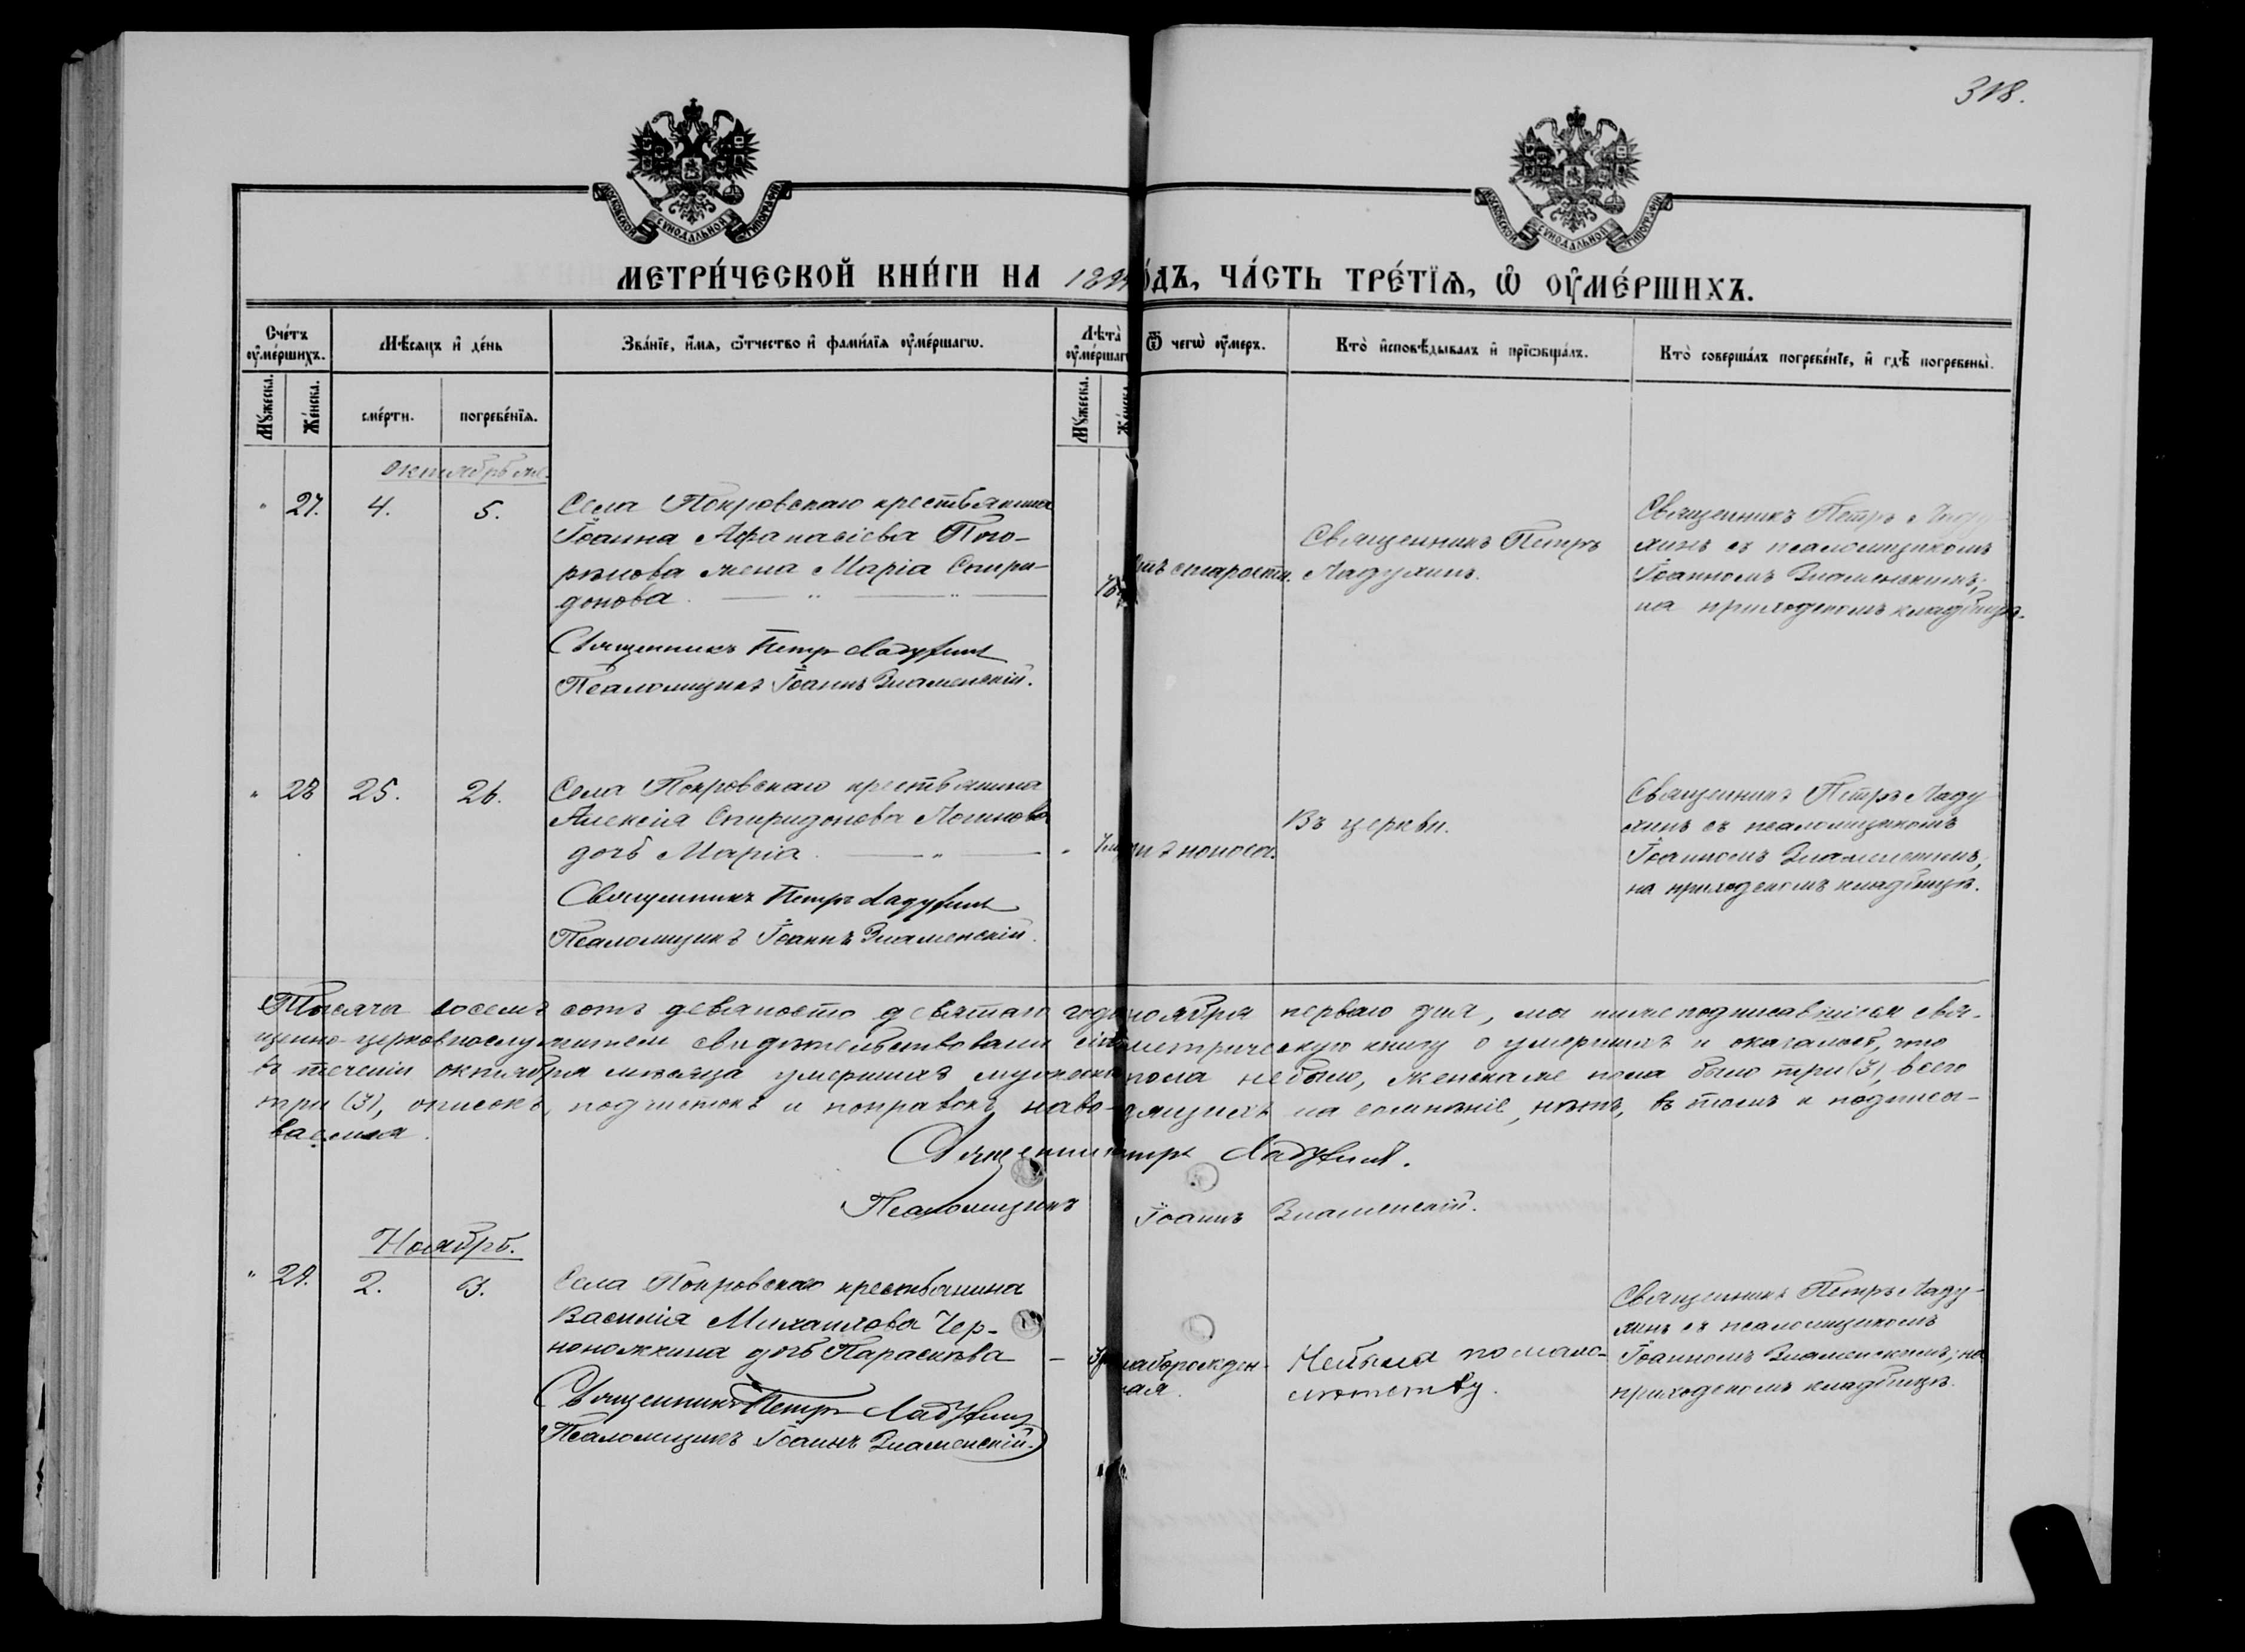 318.
МОСКОВСКОЙ СѴНОДАЛЬНОЙ ТИПОГРАФІИ
МОСКОВСКОЙ СѴНОДАЛЬНОЙ ТИПОГРАФІИ
МЕТРИ́ЧЕСКОЙ КНИ́ГИ НА 189 ОДЪ, ЧА́СТЬ ТРЕ́ТЇѦ, Ѡ҆ ОУ҆МЕ́РШИХЪ.
Сче́тъ оу҆ме́ршихъ.
Мꙋжеска.
Же́нска.
Мѣ́сяцъ и҆ де́нь
сме́рти.
погребе́нїѧ.
Зва́нїе, и҆́мѧ, ѻ҆́тчество и҆ фами́лїѧ оу҆ме́ршагѡ.
Лѣ́та оу҆ме́ршаг
Мꙋжеска.
Ѿ чегѡ̀ оу҆́меръ.
Кто̀ и҆сповѣ́дывалъ и҆ прїѡбща́лъ.
Кто̀ соверша́лъ погребе́нїе, и҆ гдѣ̀ погребены̀.
Октябрь м.
" 27. 4. 5.
Села Покровскаго крестьянина
Іоанна Аѳанасіева По-
жена Марія Спири-
донова.
Священникъ Петръ Ладухинъ
Псаломщикъ Іоаннъ Знаменскій.
старости.
Священникъ Петръ
Ладухинъ.
Священникъ Петръ Ладу
хинъ съ псаломщикомъ
Іоанномъ Знаменскимъ,
на приходскомъ кладбищѣ.
" 28 25. 26.
Села Покровскаго крестьянина
Алексія Спиридонова Логинова
дочь Марія
Священникъ Петръ Ладухинъ
Псаломщикъ Іоаннъ Знаменскій.
поноса.
Въ церкви.
Священникъ Петръ Ладу
хинъ съ псаломщикомъ
Іоанномъ Знаменскимъ,
на приходскомъ кладбищѣ.
Тысяча восемь сотъ девяносто девятаго года ноября перваго дня, мы нижеподписавшіеся свя-
щенно-церковнослужители свидѣтельствовали сію метрическую книгу о умершихъ и оказалось, что
въ теченіи октября мѣсяца умершихъ мужеска пола небыло, женска же пола было три (3), всего
три (3), описокъ, подчистокъ и поправокъ, наво-дящихъ на сомнѣніе, нѣтъ, въ томъ и подписы-
ваемся.
Священникъ Петръ Ладухинъ.
Псаломщикъ Іоаннъ Знаменскій.
Ноябрь.
" 29. 2. 3.
Села Покровскаго крестьянина
Василія Михаилова Чер-
ноножкина дочь Параскева
Священникъ Петръ Ладухинъ
Псаломщикъ Іоаннъ Знаменскій.
слаборожден-
ная.
Небыла по мало-
лѣтству.
Священникъ Петръ Ладу-
хинъ съ псаломщикомъ
Іоанномъ Знаменскимъ, на
приходскомъ кладбищѣ.